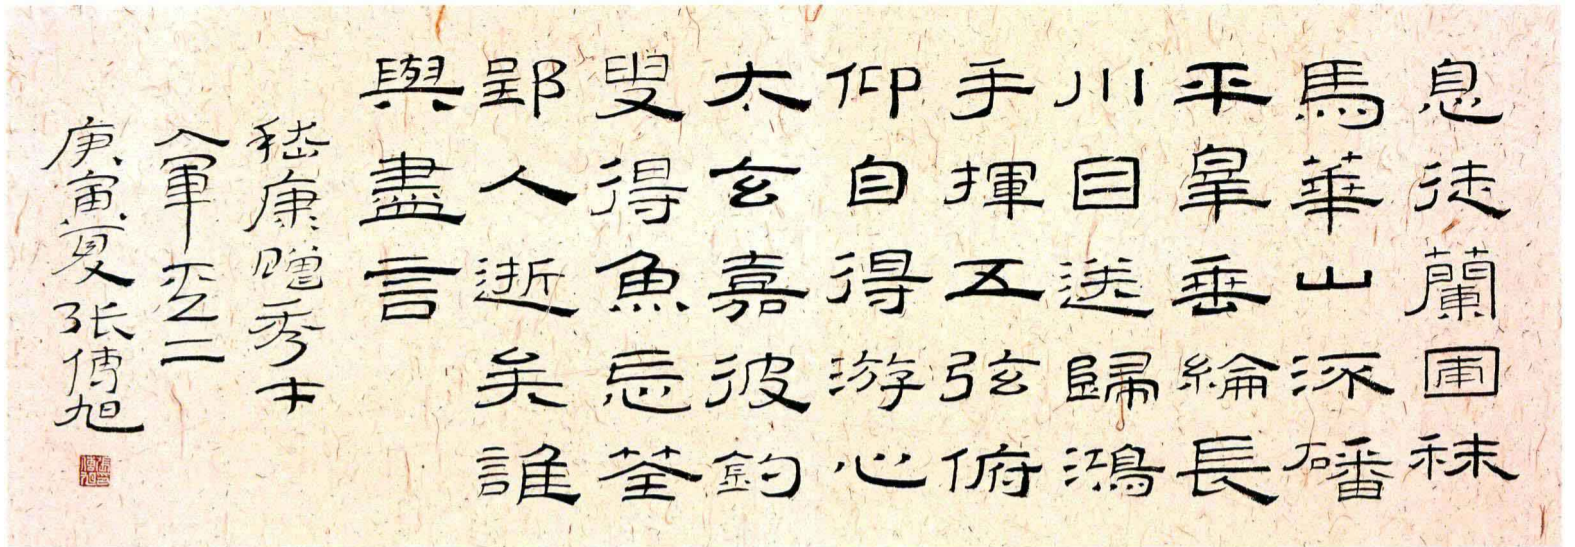 息徒蘭圃秣
馬華山流磻
平皋垂綸長
川目送歸鴻
手揮五弦俯
仰自得游心
太玄嘉彼釣
叟得魚忘筌
郢人逝矣誰
與盡言
嵇康贈秀才
入軍之二
庚寅夏張傳旭